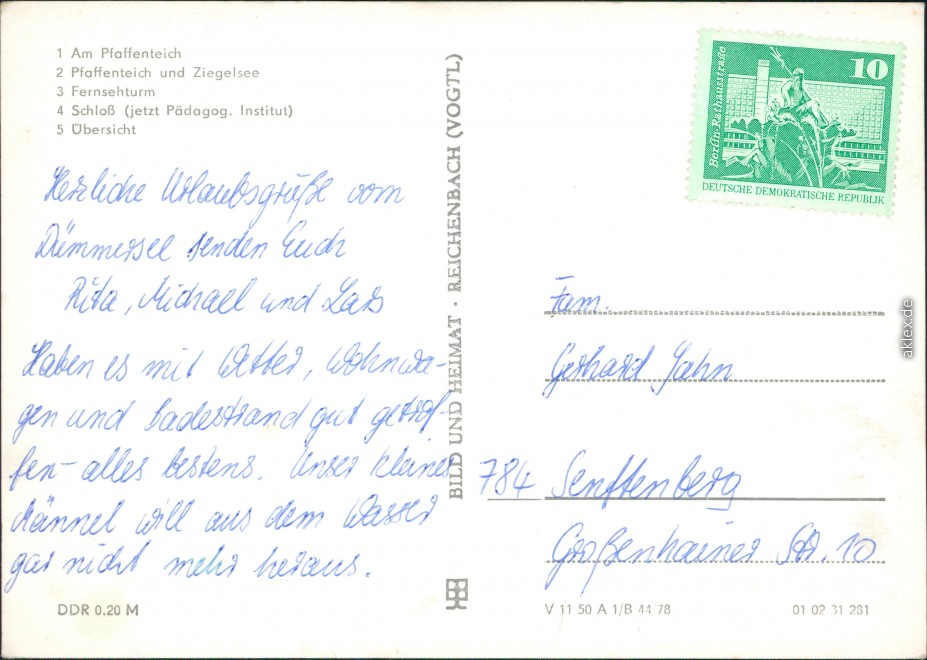 1 Am Pfaffenteich
2 Pfaffenteich und Ziegelsee
3 Fernsehturm
4 Schloß (jetzt Pädagog. Institut)
5 Übersicht
Herzliche Urlaubsgrüße vom
Dümmersee senden Euch
Rita, Michael und Lars
Haben es mit Wetter, Wohnwa-
gen und Badestrand gut getrof-
fen - alles bestens. Unser kleiner
Männel will aus dem Wasser
gar nicht mehr heraus.
DDR 0,20 M
BILD UND HEIMAT · REICHENBACH (VOGTL)
Berlin-Rathausstraße
10
DEUTSCHE DEMOKRATISCHE REPUBLIK
Fam.
Gerhard Jahn
784 Senftenberg
Großenhainer Str. 10
V 11 50 A 1/B 44/78
01 02 31 281
aklex.de